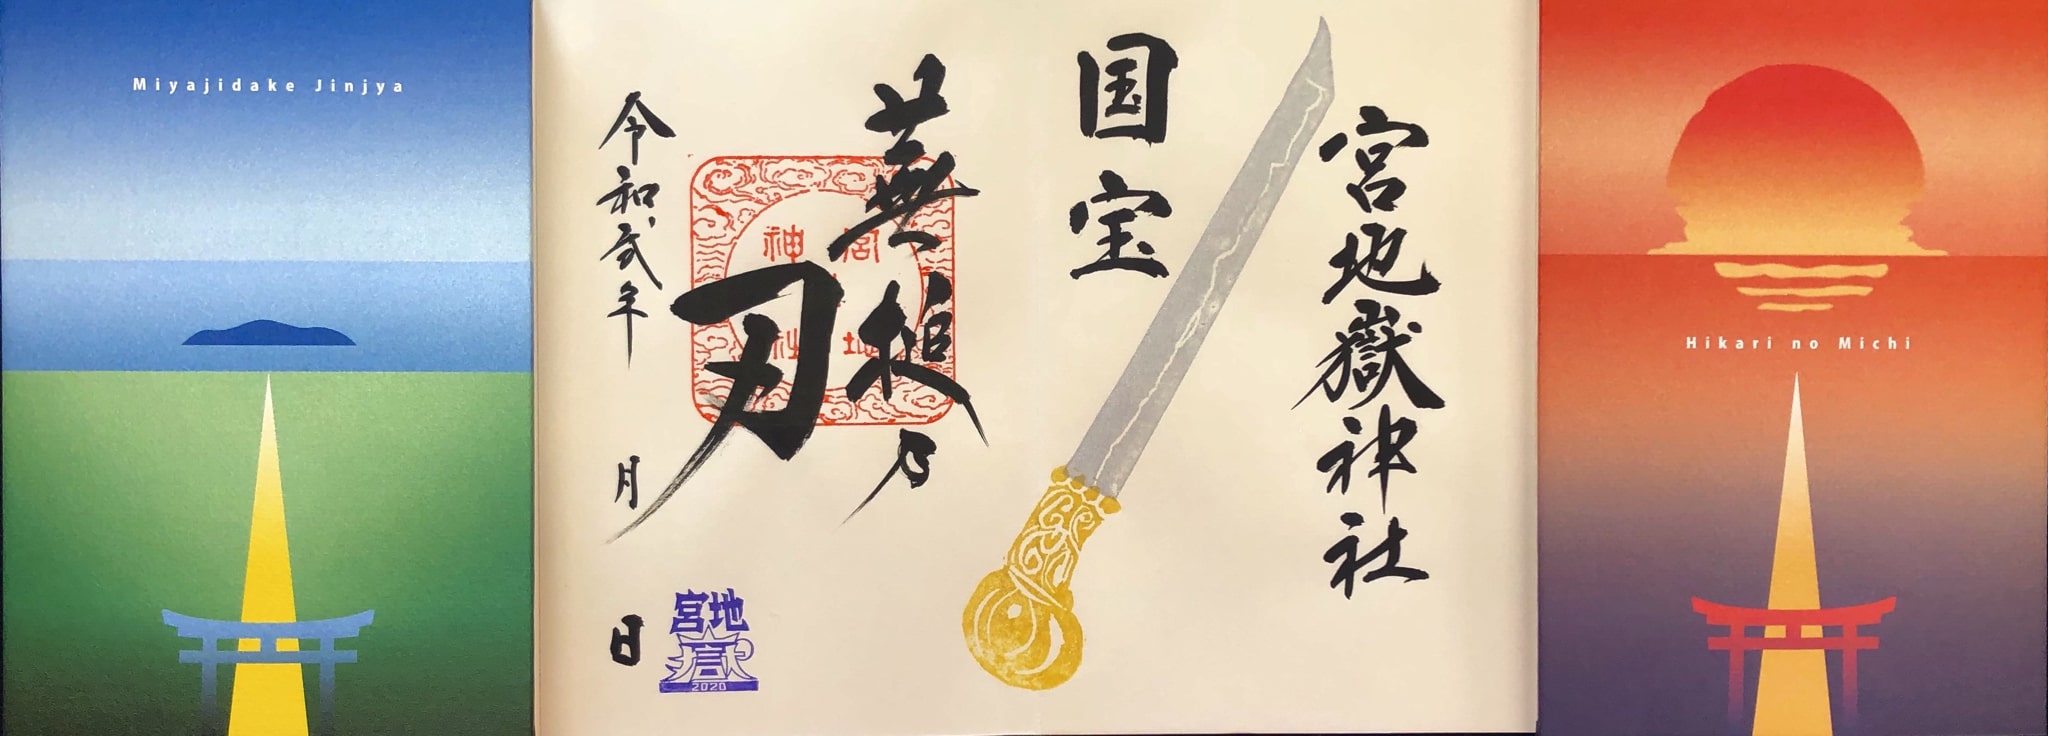 Miyajidake Jinjya
宮地嶽神社
国宝
蕪槌乃
刃
令和弐年 月 日
宮地
神社
宮地
嶽
2020
Hikari no Michi